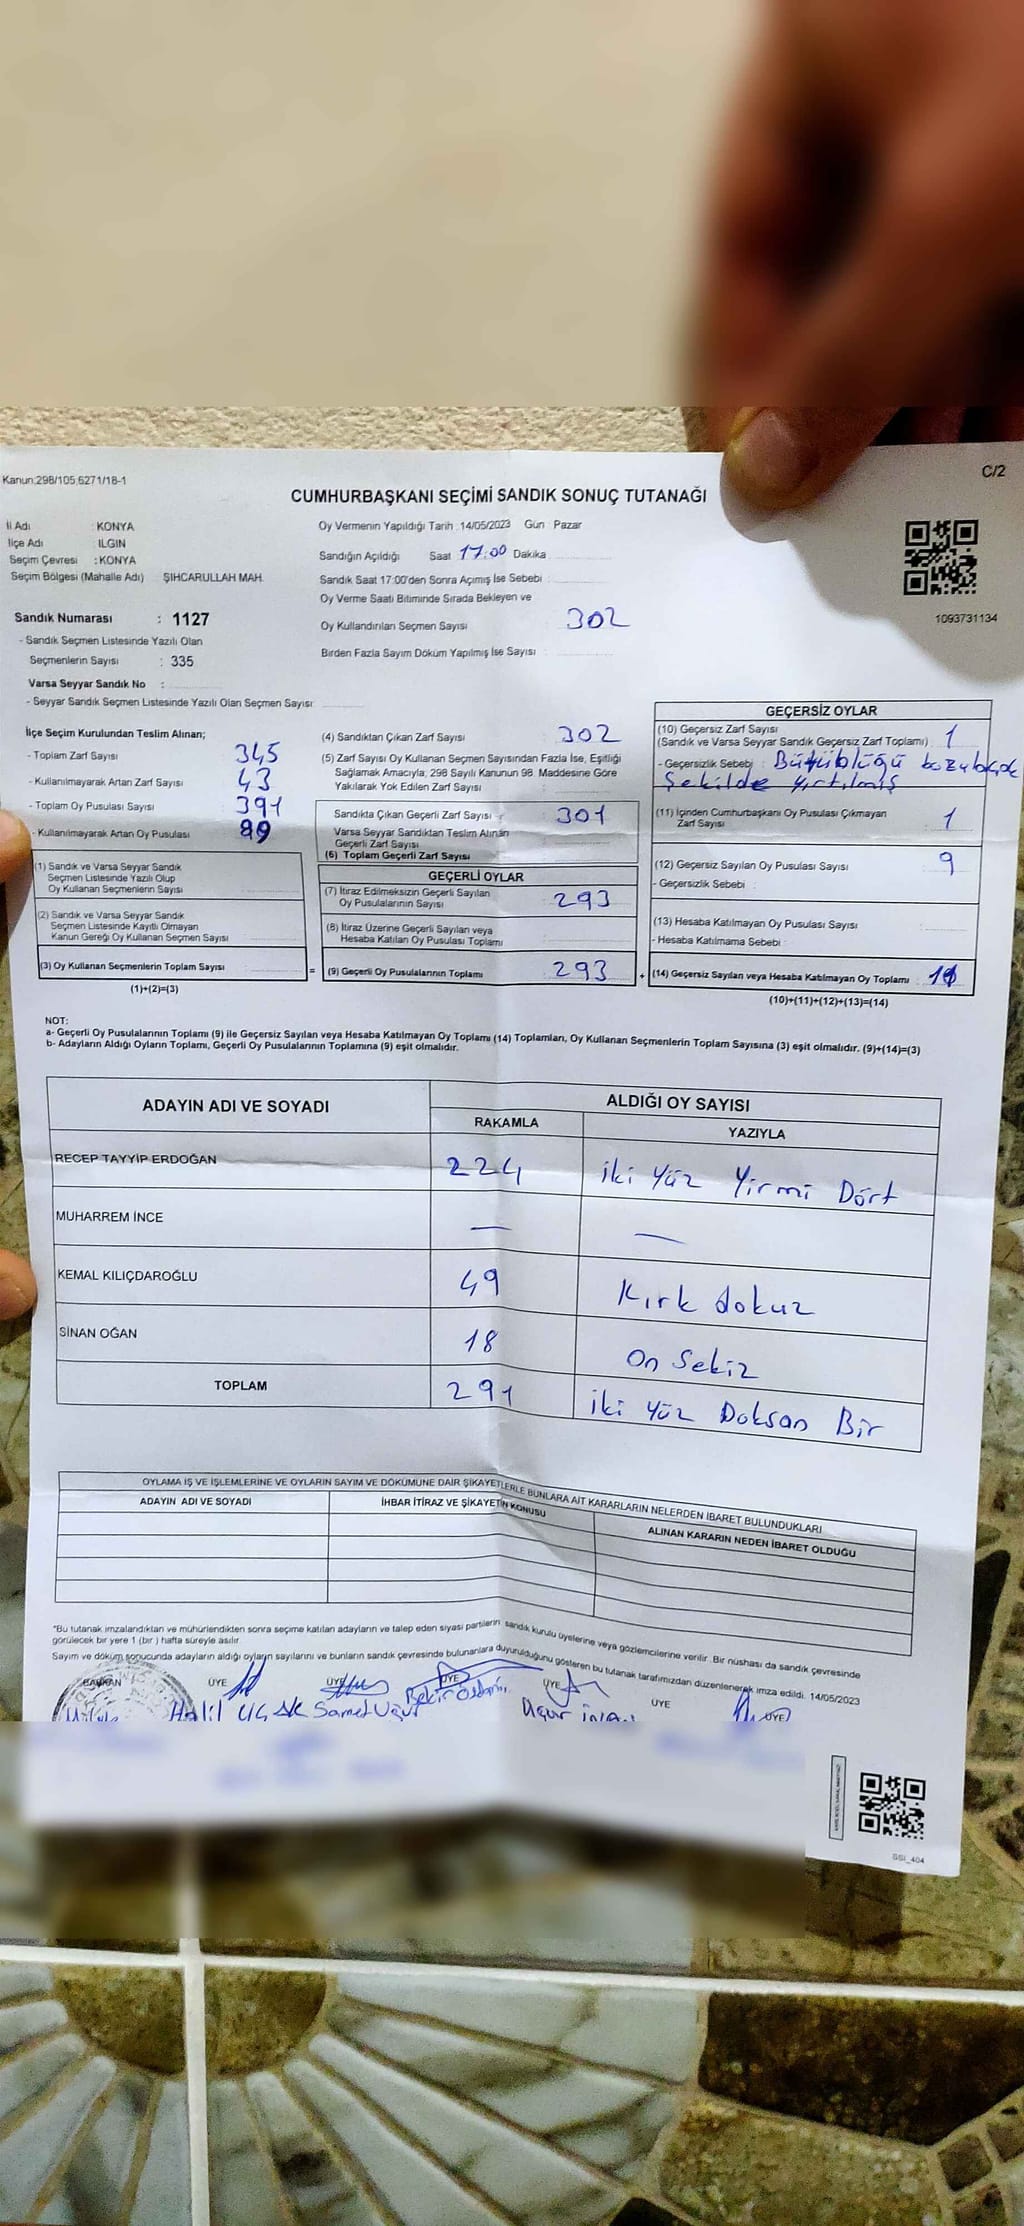 Kanun:298/105,6271/18-1
C/2
CUMHURBAŞKANI SEÇİMİ SANDIK SONUÇ TUTANAĞI
İl Adı : KONYA
İlçe Adı : ILGIN
Seçim Çevresi : KONYA
Seçim Bölgesi (Mahalle Adı) : ŞIHCARULLAH MAH.
Sandık Numarası : 1127
- Sandık Seçmen Listesinde Yazılı Olan
Seçmenlerin Sayısı : 335
Varsa Seyyar Sandık No :
- Seyyar Sandık Seçmen Listesinde Yazılı Olan Seçmen Sayısı:
Oy Vermenin Yapıldığı Tarih :14/05/2023 Gün : Pazar
Sandığın Açıldığı Saat 17:00 Dakika
Sandık Saat 17:00'den Sonra Açımış İse Sebebi :
Oy Verme Saati Bitiminde Sırada Bekleyen ve
Oy Kullandırılan Seçmen Sayısı : 302
Birden Fazla Sayım Döküm Yapılmış İse Sayısı :
1093731134
İlçe Seçim Kurulundan Teslim Alınan;
- Toplam Zarf Sayısı 345
- Kullanılmayarak Artan Zarf Sayısı 43
- Toplam Oy Pusulası Sayısı 391
- Kullanılmayarak Artan Oy Pusulası 89
(1) Sandık ve Varsa Seyyar Sandık
Seçmen Listesinde Yazılı Olup
Oy Kullanan Seçmenlerin Sayısı
(2) Sandık ve Varsa Seyyar Sandık
Seçmen Listesinde Kayıtlı Olmayan
Kanun Gereği Oy Kullanan Seçmen Sayısı
(3) Oy Kullanan Seçmenlerin Toplam Sayısı
(1)+(2)=(3)
(4) Sandıktan Çıkan Zarf Sayısı : 302
(5) Zarf Sayısı Oy Kullanan Seçmen Sayısından Fazla İse, Eşitliği
Sağlamak Amacıyla, 298 Sayılı Kanunun 98. Maddesine Göre
Yakılarak Yok Edilen Zarf Sayısı :
Sandıkta Çıkan Geçerli Zarf Sayısı : 301
Varsa Seyyar Sandıktan Teslim Alınan
Geçerli Zarf Sayısı
(6) Toplam Geçerli Zarf Sayısı
GEÇERLİ OYLAR
(7) İtiraz Edilmeksizin Geçerli Sayılan
Oy Pusulalarının Sayısı 293
(8) İtiraz Üzerine Geçerli Sayılan veya
Hesaba Katılan Oy Pusulası Toplamı
= (9) Geçerli Oy Pusulalarının Toplamı 293
GEÇERSİZ OYLAR
(10) Geçersiz Zarf Sayısı
(Sandık ve Varsa Seyyar Sandık Geçersiz Zarf Toplamı) 1
- Geçersizlik Sebebi : Bütünlüğü bozulacak
Şekilde Yırtılmış
(11) İçinden Cumhurbaşkanı Oy Pusulası Çıkmayan
Zarf Sayısı 1
(12) Geçersiz Sayılan Oy Pusulası Sayısı 9
- Geçersizlik Sebebi :
(13) Hesaba Katılmayan Oy Pusulası Sayısı
- Hesaba Katılmama Sebebi :
+ (14) Geçersiz Sayılan veya Hesaba Katılmayan Oy Toplamı
(10)+(11)+(12)+(13)=(14)
NOT:
a- Geçerli Oy Pusulalarının Toplamı (9) ile Geçersiz Sayılan veya Hesaba Katılmayan Oy Toplamı (14) Toplamları, Oy Kullanan Seçmenlerin Toplam Sayısına (3) eşit olmalıdır. (9)+(14)=(3)
b- Adayların Aldığı Oyların Toplamı, Geçerli Oy Pusulalarının Toplamına (9) eşit olmalıdır.
ADAYIN ADI VE SOYADI
ALDIĞI OY SAYISI
RAKAMLA YAZIYLA
RECEP TAYYİP ERDOĞAN 224 İki Yüz Yirmi Dört
MUHARREM İNCE — —
KEMAL KILIÇDAROĞLU 49 Kırk dokuz
SİNAN OĞAN 18 On Sekiz
TOPLAM 291 İki Yüz Doksan Bir
OYLAMA İŞ VE İŞLEMLERİNE VE OYLARIN SAYIM VE DÖKÜMÜNE DAİR ŞİKAYETLERLE BUNLARA AİT KARARLARIN NELERDEN İBARET BULUNDUKLARI
ADAYIN ADI VE SOYADI
İHBAR İTİRAZ VE ŞİKAYETİN KONUSU
ALINAN KARARIN NEDEN İBARET OLDUĞU
*Bu tutanak imzalandıktan ve mühürlendikten sonra seçime katılan adayların ve talep eden siyasi partilerin sandık kurulu üyelerine veya gözlemcilerine verilir. Bir nüshası da sandık çevresinde
görülecek bir yere 1 (bir) hafta süreyle asılır.
Sayım ve döküm sonucunda adayların aldığı oyların sayılarını ve bunların sandık çevresinde bulunanlara duyurulduğunu gösteren bu tutanak tarafımızdan düzenlenerek imza edildi. 14/05/2023
BAŞKAN ÜYE ÜYE ÜYE ÜYE ÜYE ÜYE
Halil UÇAK Samet Uğur Bekir Uğur
SSİ_404